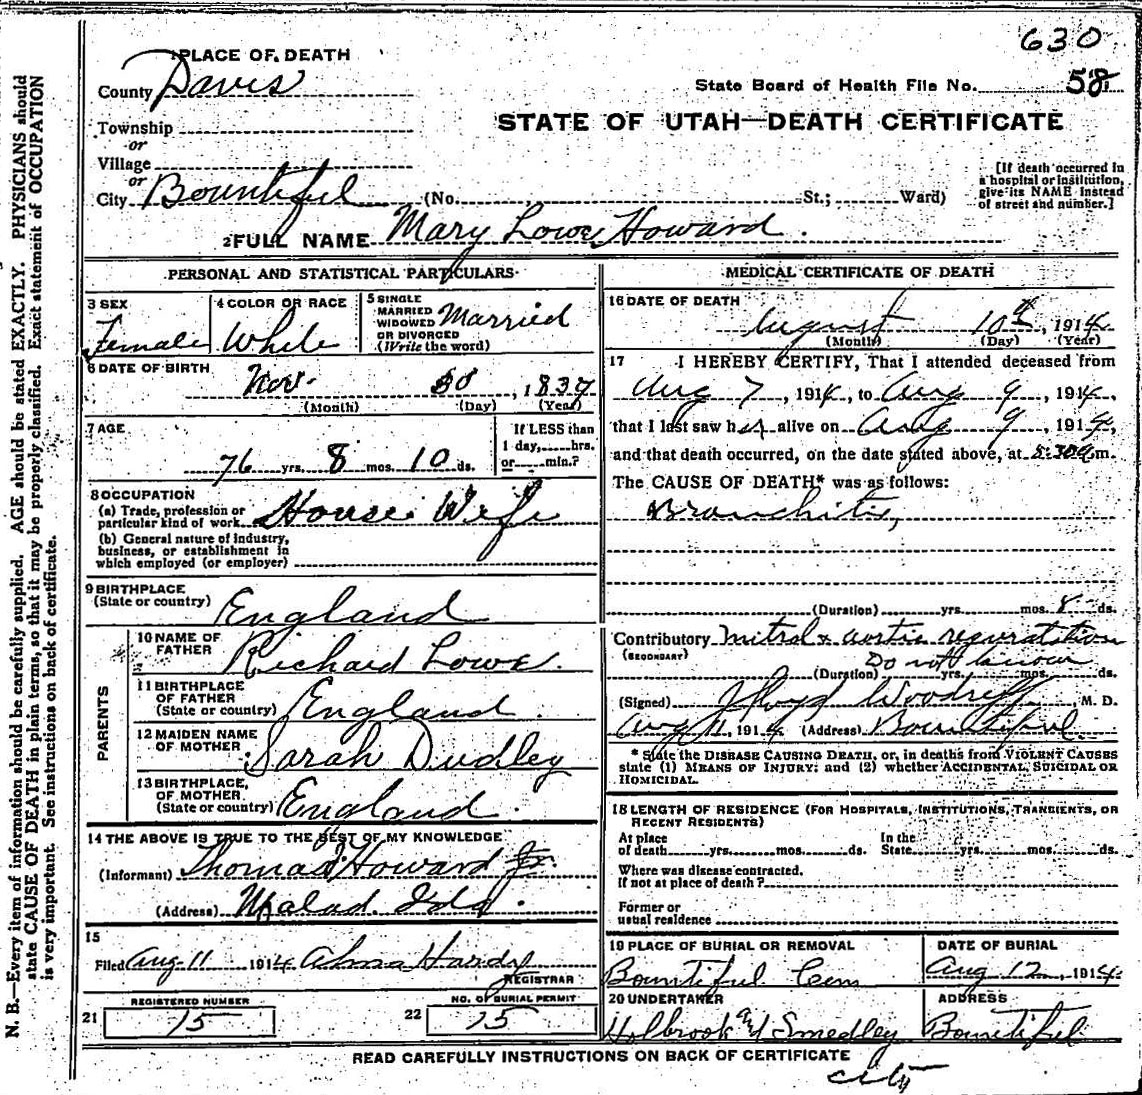 630
1 PLACE OF DEATH
County Davis
State Board of Health File No. 58
Township
or
STATE OF UTAH—DEATH CERTIFICATE
Village
or
City Bountiful (No. St.; Ward)
[If death occurred in a hospital or institution, give its NAME instead of street and number.]
2 FULL NAME Mary Lowe Howard
PERSONAL AND STATISTICAL PARTICULARS
3 SEX
Female
4 COLOR OR RACE
White
5 SINGLE
MARRIED
WIDOWED
OR DIVORCED
(Write the word)
Married
6 DATE OF BIRTH
Nov. 30, 1837
(Month) (Day) (Year)
7 AGE
76 yrs. 8 mos. 10 ds.
If LESS than
1 day, hrs.
or min.?
8 OCCUPATION
(a) Trade, profession or
particular kind of work House Wife
(b) General nature of industry,
business, or establishment in
which employed (or employer)
9 BIRTHPLACE
(State or country) England
PARENTS
10 NAME OF
FATHER Richard Lowe.
11 BIRTHPLACE
OF FATHER
(State or country) England
12 MAIDEN NAME
OF MOTHER Sarah Dudley
13 BIRTHPLACE,
OF MOTHER
(State or country) England.
14 THE ABOVE IS TRUE TO THE BEST OF MY KNOWLEDGE
(Informant) Thomas Howard Jr.
(Address) Malad. Ida.
15
Filed Aug 11 1914 Alma Hardy
REGISTRAR
REGISTERED NUMBER
21 75
NO. OF BURIAL PERMIT
22 75
MEDICAL CERTIFICATE OF DEATH
16 DATE OF DEATH
August 10th, 1914
(Month) (Day) (Year)
17 I HEREBY CERTIFY, That I attended deceased from
Aug 7, 1914, to Aug 9, 1914,
that I last saw her alive on Aug 9, 1914,
and that death occurred, on the date stated above, at 5:30 m.
The CAUSE OF DEATH* was as follows:
Bronchitis,
(Duration) yrs. mos. 8 ds.
Contributory mitral & aortic regurgitation
(SECONDARY)
Do not know
(Duration) yrs. mos. ds.
(Signed) Woodruff M. D.
Aug 11, 1914 (Address) Bountiful.
* State the DISEASE CAUSING DEATH, or, in deaths from VIOLENT CAUSES
state (1) MEANS OF INJURY; and (2) whether ACCIDENTAL, SUICIDAL OR
HOMICIDAL.
18 LENGTH OF RESIDENCE (FOR HOSPITALS, INSTITUTIONS, TRANSIENTS, OR
RECENT RESIDENTS)
At place In the
of death yrs. mos. ds. State yrs. mos. ds.
Where was disease contracted,
if not at place of death?
Former or
usual residence
19 PLACE OF BURIAL OR REMOVAL
Bountiful Cem
DATE OF BURIAL
Aug 12, 1914
20 UNDERTAKER
Holbrook and Smedley
ADDRESS
Bountiful
READ CAREFULLY INSTRUCTIONS ON BACK OF CERTIFICATE
city
N. B.—Every item of information should be carefully supplied. AGE should be stated EXACTLY. PHYSICIANS should
state CAUSE OF DEATH in plain terms, so that it may be properly classified. Exact statement of OCCUPATION
is very important. See instructions on back of certificate.